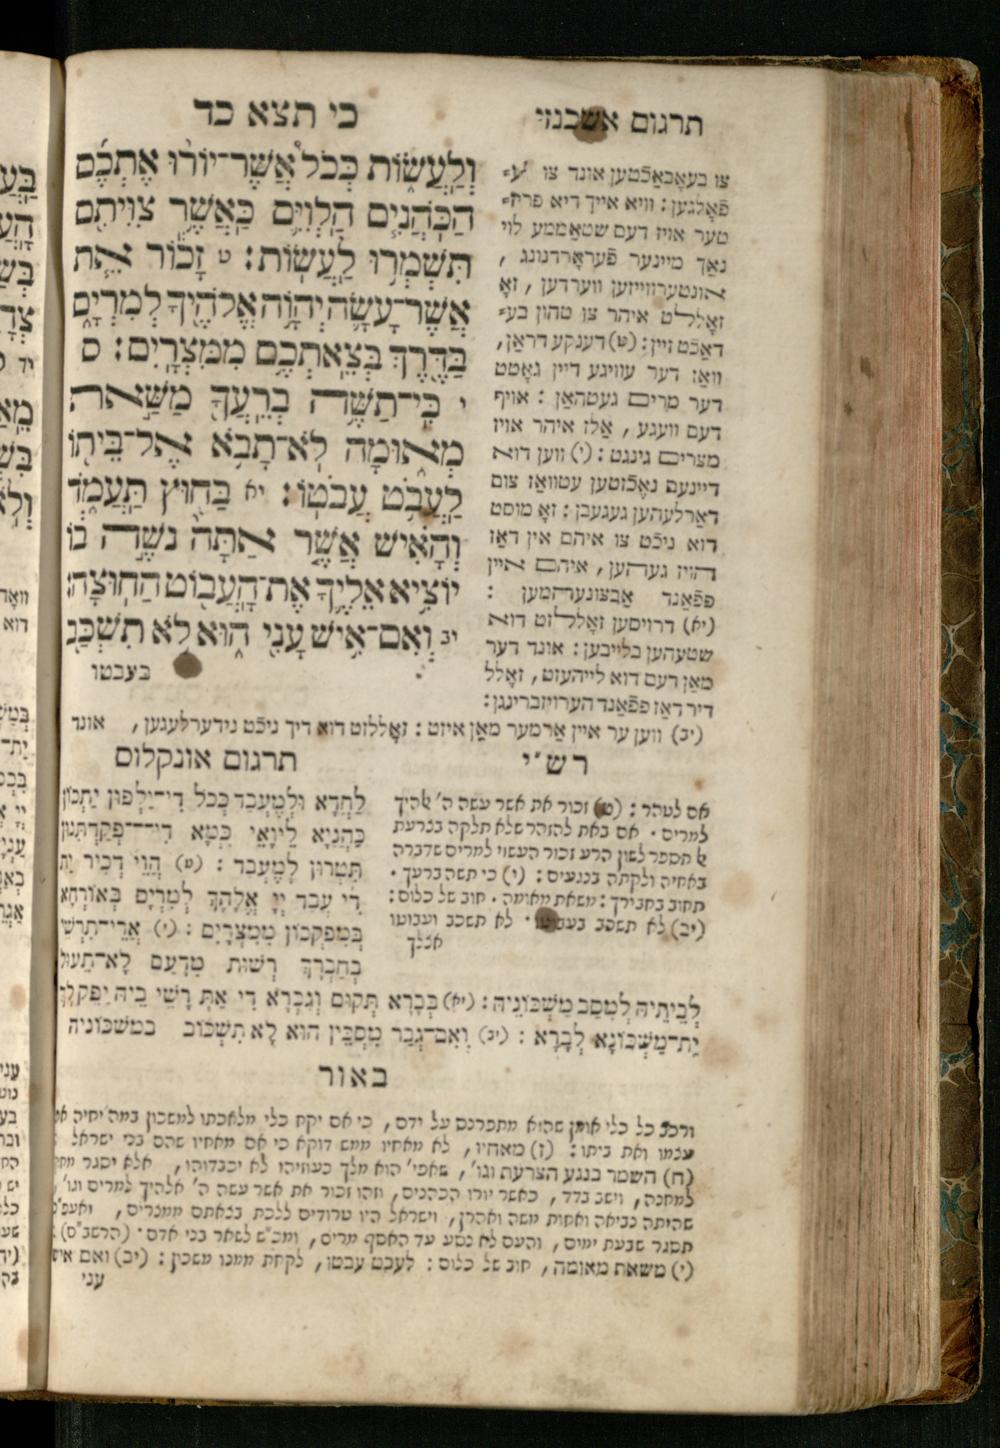 תרגום אשכנזי
כי תצא כד
וְלַעֲשׂוֹת כְּכֹל אֲשֶׁר־יוֹרוּ אֶתְכֶם
הַכֹּהֲנִים הַלְוִיִּם כַּאֲשֶׁר צִוִּיתִם
תִּשְׁמְרוּ לַעֲשׂוֹת: ט זָכוֹר אֵת
אֲשֶׁר־עָשָׂה יְהוָֹה אֱלֹהֶיךָ לְמִרְיָם
בַּדֶּרֶךְ בְּצֵאתְכֶם מִמִּצְרָיִם: ס
י כִּי־תַשֶּׁה בְרֵעֲךָ מַשַּׁאת
מְאוּמָה לֹא־תָבֹא אֶל־בֵּיתוֹ
לַעֲבֹט עֲבֹטוֹ: יא בַּחוּץ תַּעֲמֹד
וְהָאִישׁ אֲשֶׁר אַתָּה נֹשֶׁה בוֹ
יוֹצִיא אֵלֶיךָ אֶת־הַעֲבוֹט הַחוּצָה:
יב וְאִם־אִישׁ עָנִי הוּא לֹא תִשְׁכַּב
בעבטו
צו בעאָבאַכֿטען אונד צו
פֿאָלגען: וויא אייך דיא פריז=
טער אויז דעם שטאַממע לוי
נאַך מיינער פֿעראָרדנונג,
אונטערווייזען ווערדען, זאָ
זאָללט איהר צו טהון בע=
דאַכֿט זיין: (ט) דענקע דראַן,
וואַז דער עוויגע דיין גאָטט
דער מרים געטהאַן: אויף
דעם וועגע, אַלז איהר אויז
מצרים גינגט: (י) ווען דוא
דיינעם נאֶכֿזטען עטוואַז צום
דאַרלעהען געגעבן: זאָ מוסט
דוא ניכֿט צו איהם אין דאַז
הויז געהען, איהם איין
פפֿאַנד אַבצונעהמען:
(יא) דרויסען זאָללזט דוא
שטעהען בלייבען: אונד דער
מאַן דעם דוא לייהעזט, זאָלל
דיר דאַז פפֿאַנד הערויזברינגן:
(יב) ווען ער איין אַרמער מאַן איזט: זאָללזט דוא דיך ניכֿט נידערלעגען, אונד
רש״י
אם לטהר: (ט) זכור את אשר עשה ה' אלהיך
למרים. אם באת להזהר שלא תלקה בצרעת
אל תספר לשון הרע זכור העשוי למרים שדברה
באחיה ולקתה בנגעים: (י) כי תשה ברעך.
תחוב בחבירך: משאת מאומה. חוב של כלום:
(יב) לא תשכב בעבוטו. לא תשכב ועבוטו
אצלך
תרגום אונקלוס
לַחֲדָא וּלְמֶעְבַּד כְּכֹל דִּי־יַלְּפוּן יָתְכוֹן
כָּהֲנַיָּא לֵיוָאֵי כְּמָא דִי־פַקֵּדְתִּנּוּן
תִּטְּרוּן לְמֶעְבַּד: (ט) הֱוֵי דְכִיר יָת
דִּי עֲבַד יְיָ אֱלָהָךְ לְמִרְיָם בְּאוֹרְחָא
בְּמִפַּקְכוֹן מִמִּצְרָיִם: (י) אֲרֵי־תַרְשֵׁי
בְחַבְרָךְ רְשׁוּת מִדַּעַם לָא־תֵעוּל
לְבֵיתֵיהּ לְמִסַּב מַשְׁכּוֹנֵיהּ: (יא) בְּבָרָא תְּקוּם וְגַבְרָא דִּי אַתְּ רָשֵׁי בֵיהּ יַפֵּק לָךְ
יָת־מַשְׁכּוֹנָא לְבָרָא: (יב) וְאִם־גְּבַר מִסְכֵּן הוּא לָא תִשְׁכּוּב במשכוניה
באור
ורכב כל כלי אומן שהוא מתפרנס על ידם, כי אם יקח כלי מלאכתו למשכון במה יחיה את
עצמו ואת ביתו: (ז) מאחיו, לא מאחיו ממש דוקא כי אם מאחיו שהם בני ישראל
(ח) השמר בנגע הצרעת וגו', שאפי' הוא מלך כעוזיהו לא יכבדוהו, אלא יסגר
למחנה, וישב בדד, כאשר יורו הכהנים, וזהו זכור את אשר עשה ה' אלהיך למרים וגו',
שהיתה נביאה ואחות משה ואהרן, וישראל היו טרודים ללכת בצאתם ממצרים, ואעפ״כ
תסגר שבעת ימים, והעם לא נסע עד האסף מרים, ומכ״ש לשאר בני אדם. (הרשב״ם)
(י) משאת מאומה, חוב של כלום: לעבט עבטו, לקחת ממנו משכון: (יב) ואם איש
עני